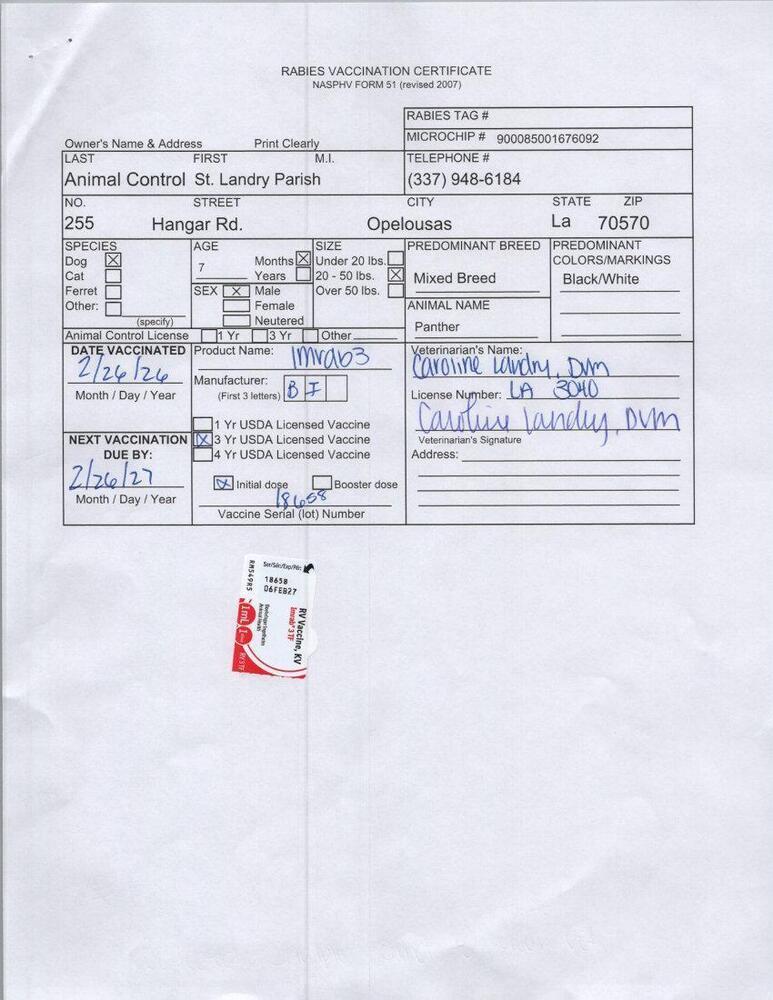 RABIES VACCINATION CERTIFICATE
NASPHV FORM 51 (revised 2007)
RABIES TAG #
Owner's Name & Address Print Clearly
MICROCHIP # 900085001676092
LAST FIRST M.I. TELEPHONE #
Animal Control St. Landry Parish (337) 948-6184
NO. STREET CITY STATE ZIP
255 Hangar Rd. Opelousas La 70570
SPECIES AGE SIZE PREDOMINANT BREED PREDOMINANT
COLORS/MARKINGS
Dog Months Under 20 lbs.
7
Cat Years 20 - 50 lbs. Mixed Breed Black/White
Ferret SEX Male Over 50 lbs.
Other: Female ANIMAL NAME
(specify) Neutered Panther
Animal Control License 1 Yr 3 Yr Other
DATE VACCINATED Product Name: Imrab3 Veterinarian's Name:
2/26/26 Caroline Landry, DVM
Month / Day / Year Manufacturer: B I License Number: LA 3040
(First 3 letters)
1 Yr USDA Licensed Vaccine Caroline Landry, DVM
NEXT VACCINATION 3 Yr USDA Licensed Vaccine Veterinarian's Signature
DUE BY: 4 Yr USDA Licensed Vaccine Address:
2/26/27 Initial dose Booster dose
Month / Day / Year 18658
Vaccine Serial (lot) Number
Ser/Sér/Exp/Pér:
18658
06FEB27
RV Vaccine, KV
Imrab® 3 TF
Boehringer Ingelheim
Animal Health
1mL
RM549R5